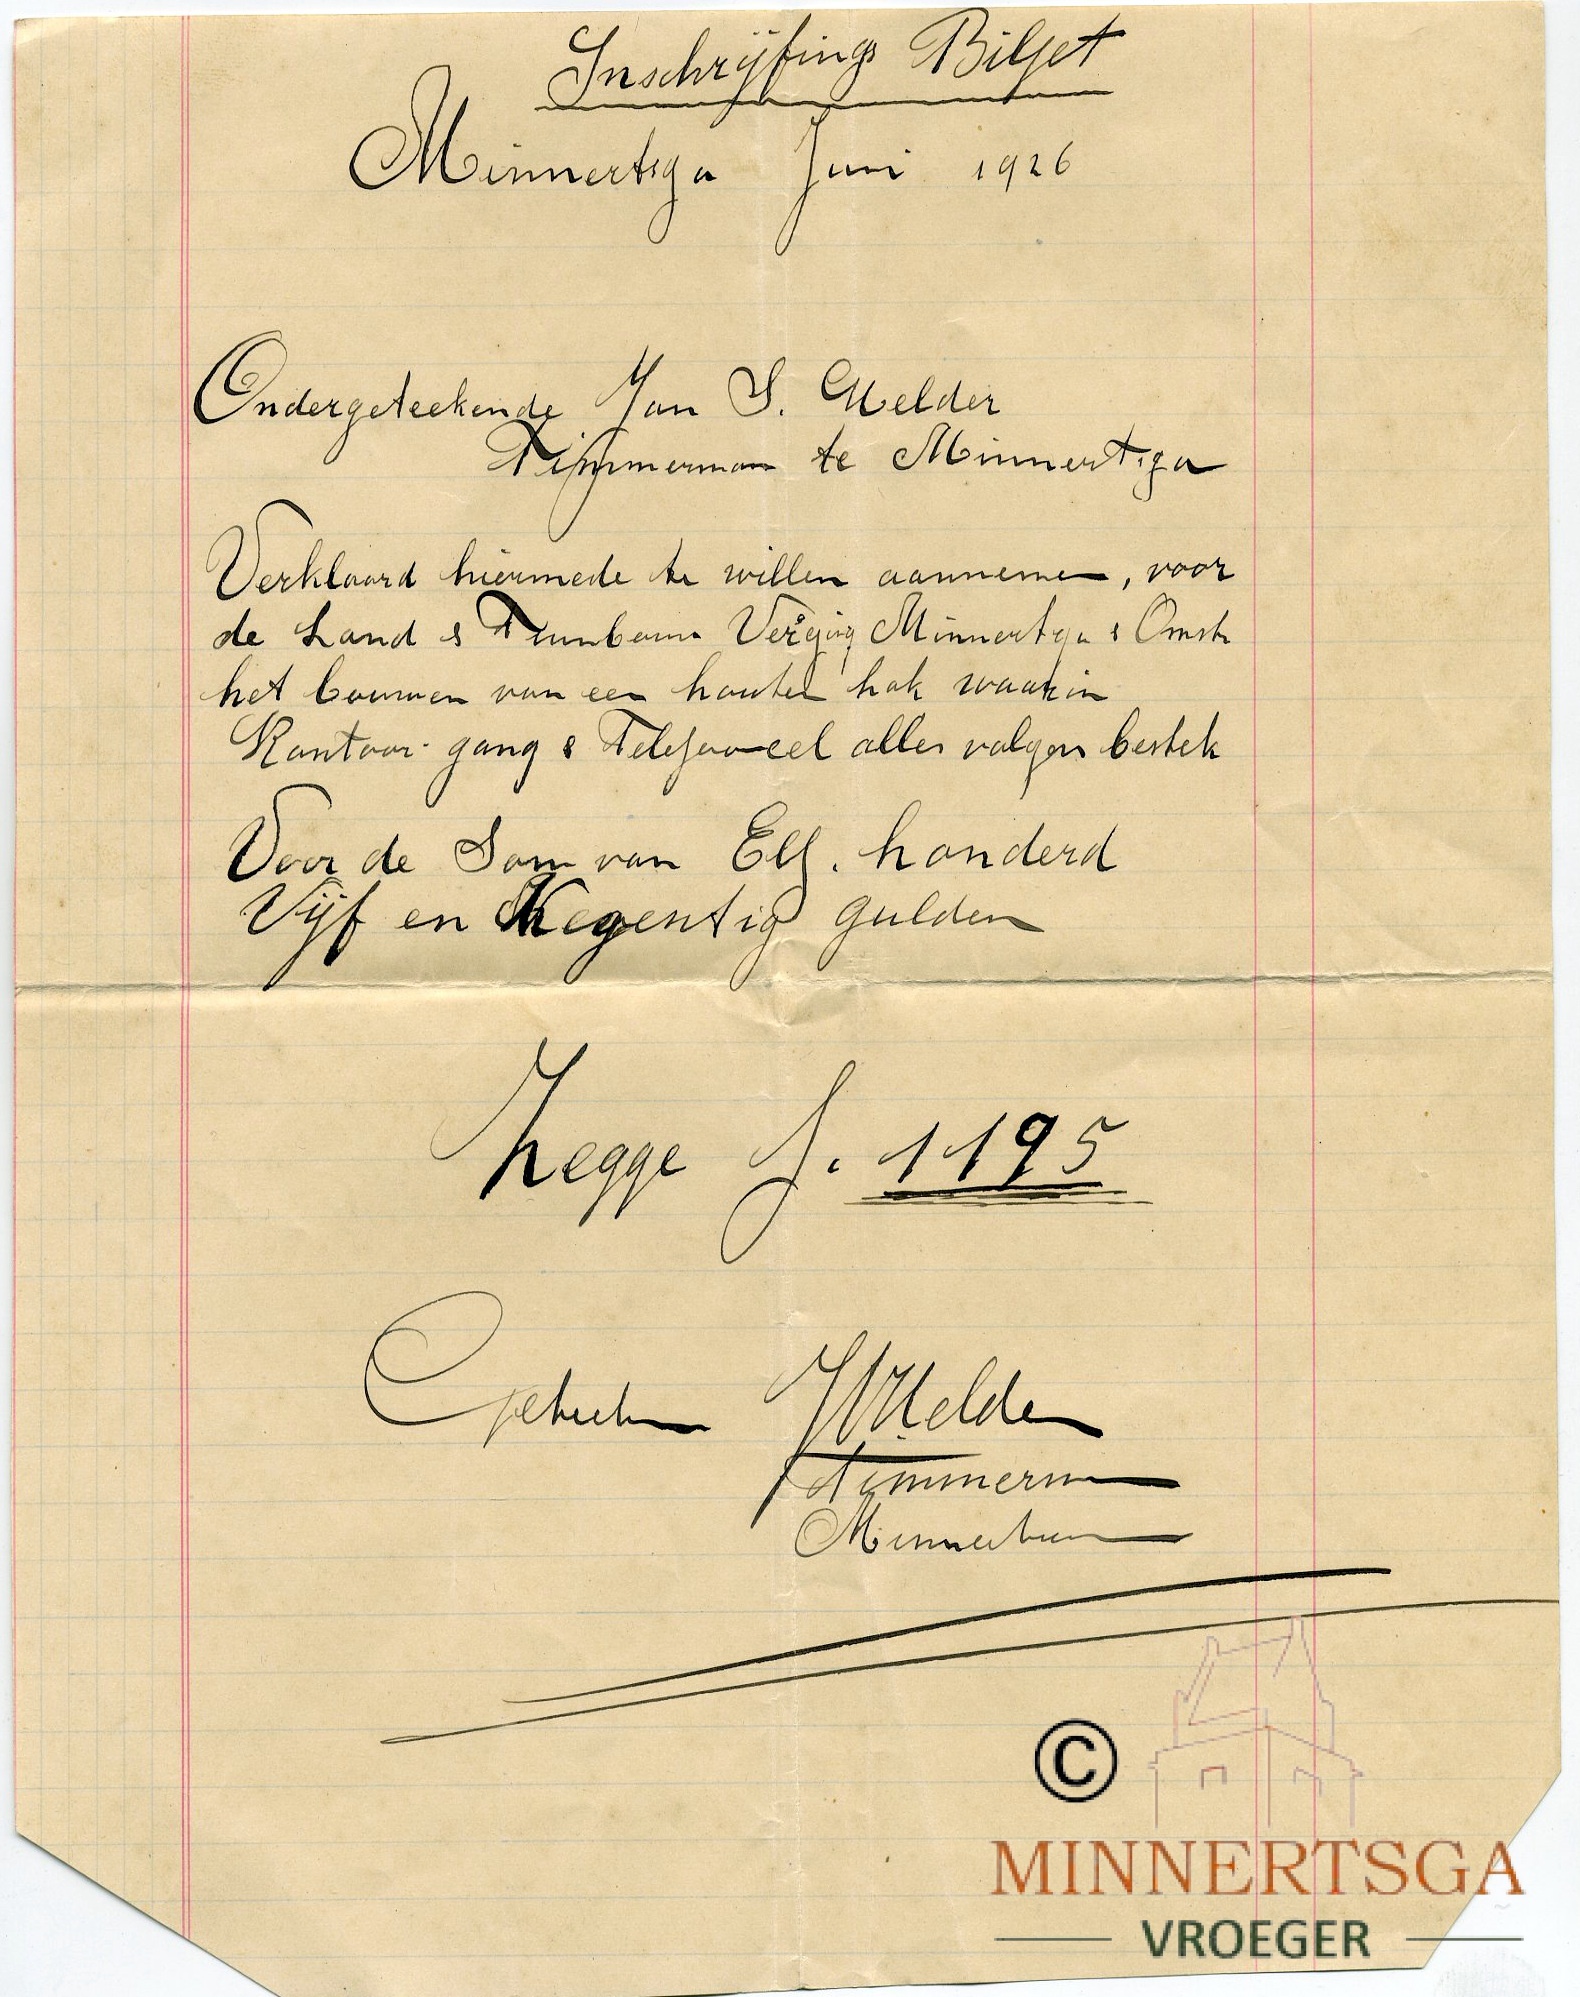 Inschrijfings Biljet
Minnertsga Juni 1926
Ondergeteekende Jan S. Melder
Timmerman te Minnertsga
Verklaard hiermede te willen aannemen, voor
de Land & Tuinbouw Verging Minnertsga & Omstr
het bouwen van een houten hok waarin
Kantoor gang & Telefooncel alles volgens bestek
Voor de Som van Elf. honderd
Vijf en Negentig gulden
Zegge f. 1195
Geteekend JMelder
Timmerman
Minnertsga
© MINNERTSGA
VROEGER